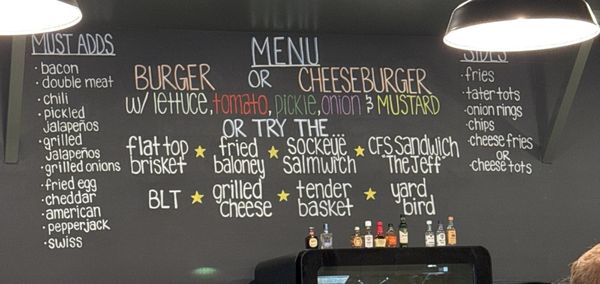 MUST ADDS
• bacon
• double meat
• chili
• pickled
jalapeños
• grilled
jalapeños
• grilled onions
• fried egg
• cheddar
• american
• pepperjack
• swiss
MENU
BURGER OR CHEESEBURGER
w/ lettuce, tomato, pickle, onion & MUSTARD
OR TRY THE...
flat top brisket ★ fried baloney ★ sockeye salmwich ★ CFS Sandwich "The Jeff"
BLT ★ grilled cheese ★ tender basket ★ yard bird
SIDES
• fries
• tater tots
• onion rings
• chips
• cheese fries
or
• cheese tots